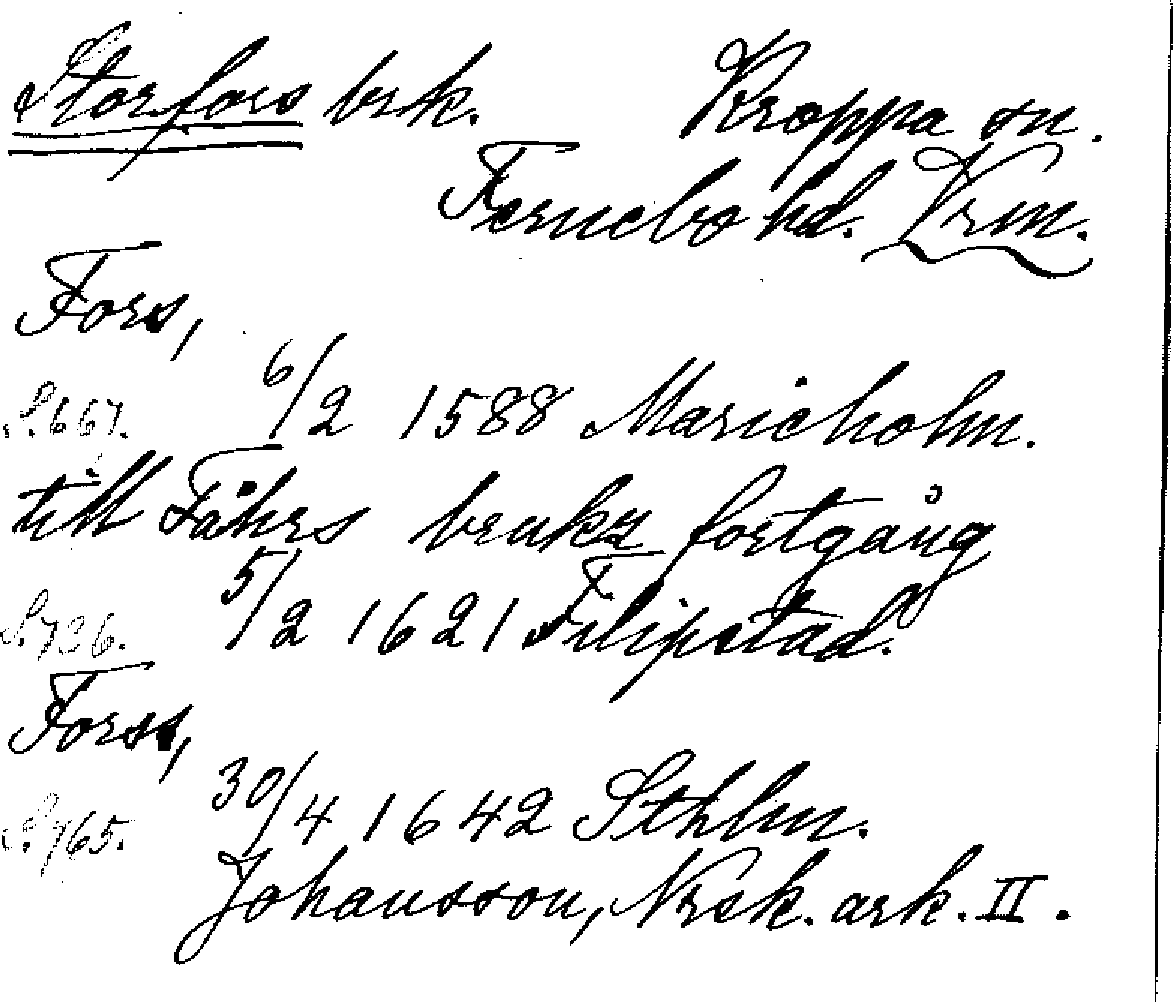 Storfors brk. Kroppa sn.
Fernebo hd. Vrm.
Fors,
S. 667. 6/2 1588 Marieholm.
till Fåhrs brukz fortgång
S. 736. 5/2 1621 Filipstad.
Forss,
S. 765. 30/4 1642 Sthlm.
Johansson, Nrsk. ark. II.